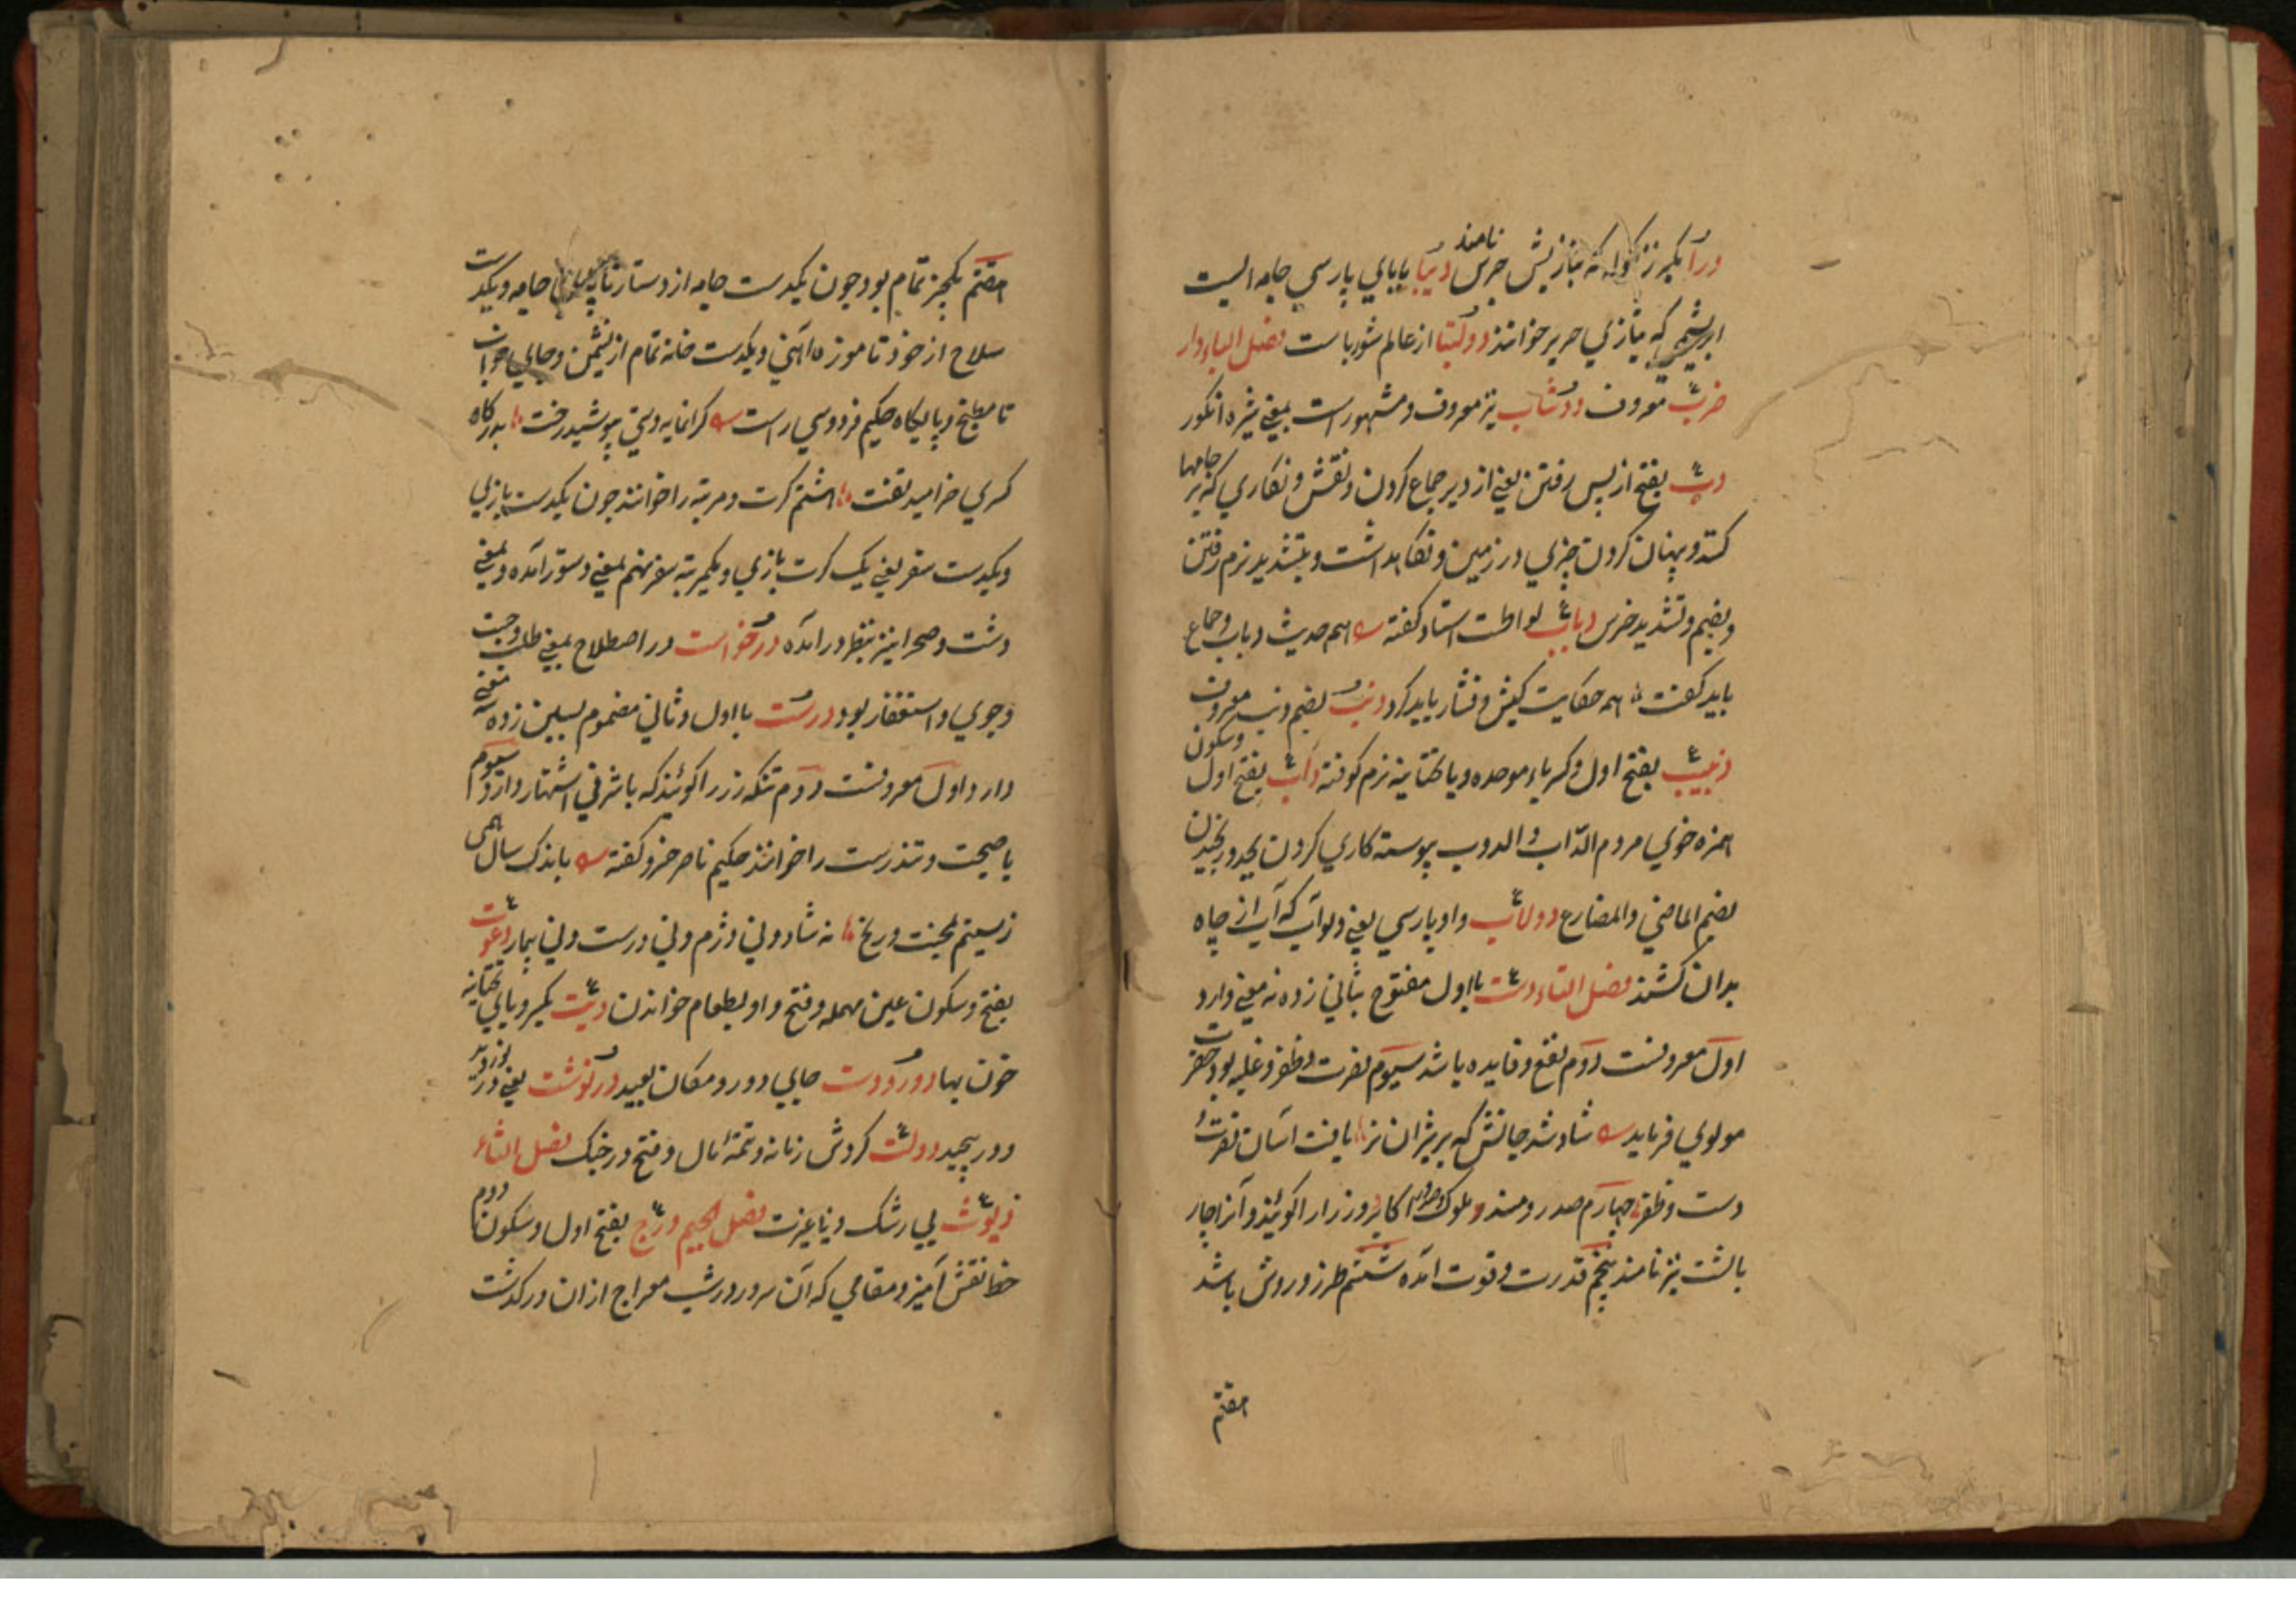 درا بکسر زنگوله که بتازیش جرس نامند دیبا بابای پارسی جامه ایست
ابریشمی که بتازی حریر خوانند دولتبا از عالم شورباست فصل الباء دار
ضرب معروف دوشاب نیز معروف و مشهور است بمعنی شیره انکور
دب بفتح از پس رفتن یعنی از دیر جماع کردن و نقش و نکاری که بر جامها
کنند و پنهان کردن چیزی در زمین و نکاهداشت و بتشدید نرم رفتن
و بضم و تشدید خرس دباب لواطت استاد کفته هم حدیث دباب و جماع
باید کفت همه حکایت کیش و فشار باید کرد دنب بضم دنبه معروف
دبیب بفتح اول و کسر باء موحده و یا تحتانیه نرم کوفته داب بفتح اول و سکون
همزه خوی مردم الداب و الدوب پیوسته کاری کردن بجد و رنجیدن
بضم الماضی و المضارع دولاب واو پارسی یعنی دلو آب که آب از چاه
بدان کشند فصل التاء دست بااول مفتوح بثانی زده نه معنی دارد
اول معروفست دوم نفع و فایده باشد سیوم نصرت و ظفر و غلبه بود حضرت
مولوی فرماید شاد شد جانش که بر شیران نر یافت آسان نصرت
دست و ظفر چهارم صدر و مسند و ملوک و صدور اکابر و وزرا را کویند و آنرا چار
بالشت نیز نامند پنجم قدرت و قوت آمده ششم طرز و روش باشد
هفتم
هفتم یکچیز تمام بود چون یکدست جامه از دستار تا پای جامه و یکدست
سلاح از خود تا موزه آهنی و یکدست خانه تمام از نشیمن و جای خواب
تا مطبخ و پایکاه حکیم فردوسی راست کرانمایه دستی بپوشید رفت بدرکاه
کسری خرامید تفت هشتم کرت و مرتبه را خوانند چون یکدست بازی
و یکدست سفر یعنی یک کرت بازی و یکمرتبه سفر نهم بمعنی دستور آمده و بمعنی
دشت و صحرا نیز بنظر در آمده درخواست در اصطلاح بمعنی طلب و جست
و جوی و استغفار بود درست بااول و ثانی مضموم بسین زده سه معنی
دارد اول معروفست دوم تنکه زر را کویند که باشرفی اشتهار دارد سیوم
با صحت و تندرست را خوانند حکیم ناصر خسرو کفته باندک سال همی
زیستم بمحنت و رنج نه شاد و نی دژم و نی درست و نی بیمار دعوت
بفتح و سکون عین مهمله و فتح واو بطعام خواندن دیت بکسر و یای تحتانیه
خون بها دور دست جای دور و مکان بعید درنوشت یعنی در نوردید
و در پیچید دولت کردش زمانه و تتمه مال و فتح در جنک فصل الثاء
دیوث بی رشک و بناغیرت فصل الجیم درج بفتح اول و سکون دوم
خط نقش آمیز و مقامی که آن سرور در شب معراج از ان در کذشت